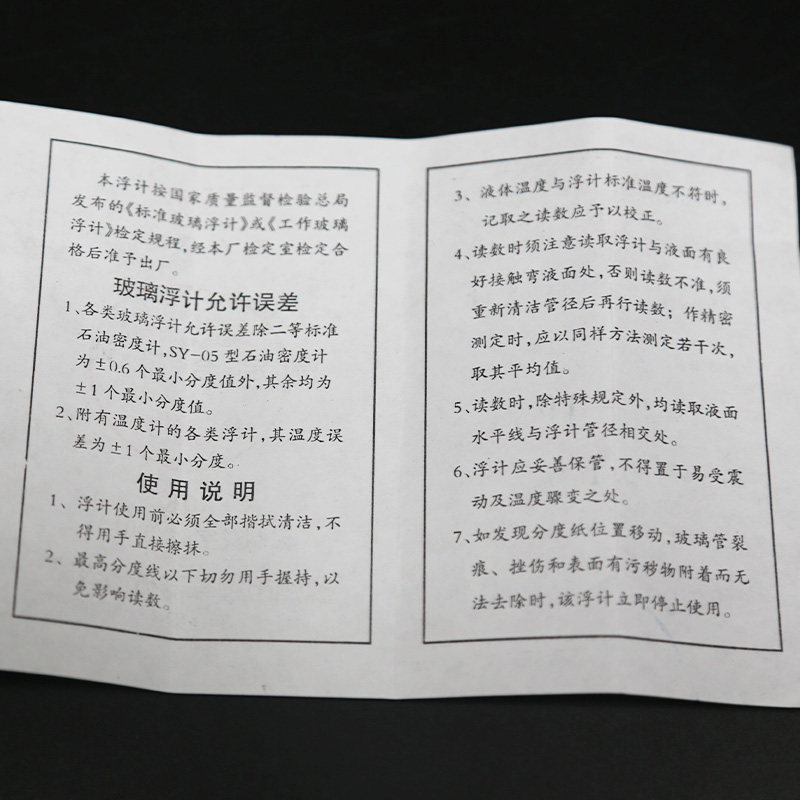 本浮计按国家质量监督检验总局
发布的《标准玻璃浮计》或《工作玻璃
浮计》检定规程,经本厂检定室检定合
格后准予出厂。
玻璃浮计允许误差
1、各类玻璃浮计允许误差除二等标准
石油密度计,SY-05型石油密度计
为±0.6个最小分度值外,其余均为
±1个最小分度值。
2、附有温度计的各类浮计,其温度误
差为±1个最小分度。
使用说明
1、浮计使用前必须全部揩拭清洁,不
得用手直接擦抹。
2、最高分度线以下切勿用手握持,以
免影响读数。
3、液体温度与浮计标准温度不符时,
记取之读数应予以校正。
4、读数时须注意读取浮计与液面有良
好接触弯液面处,否则读数不准,须
重新清洁管径后再行读数;作精密
测定时,应以同样方法测定若干次,
取其平均值。
5、读数时,除特殊规定外,均读取液面
水平线与浮计管径相交处。
6、浮计应妥善保管,不得置于易受震
动及温度骤变之处。
7、如发现分度纸位置移动,玻璃管裂
痕、挫伤和表面有污秽物附着而无
法去除时,该浮计立即停止使用。